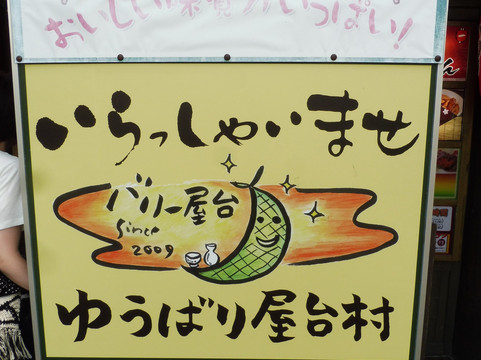 おいしい味覚がいっぱい!
いらっしゃいませ
バリー屋台
since
2009
ゆうばり屋台村